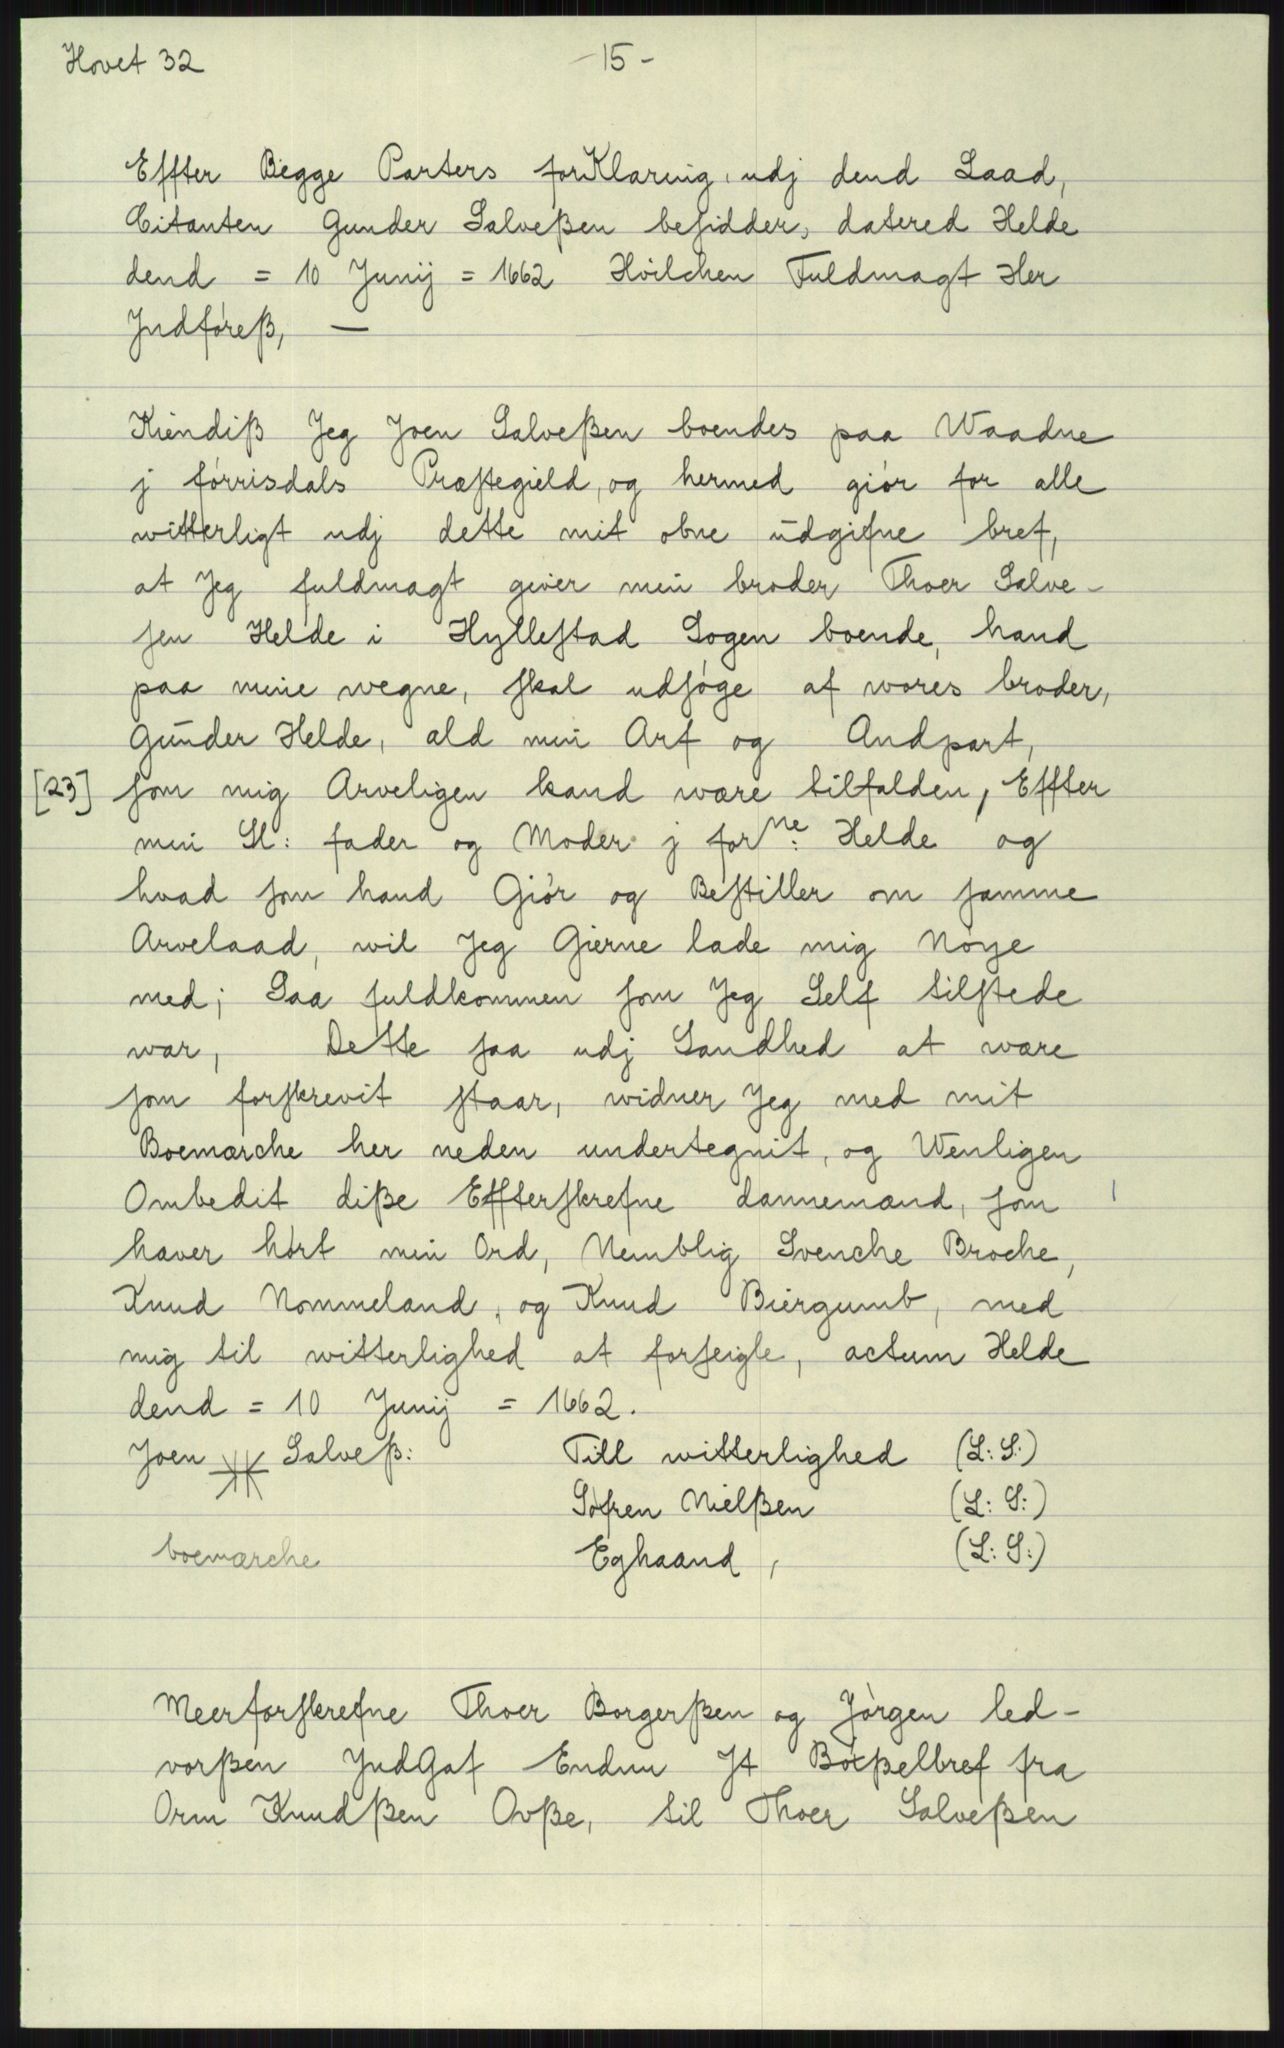 Hovet 32
- 15 -
Effter Begge Parters forKlaring, udj dend Laad,
Citanten Gunder Salveßen besidder, datered Helde
dend = 10 Junij = 1662 Hvilchen Fuldmagt Her
Jndføreß, —
Kiendiß Jeg Joen Salveßen boendes paa Waadne
j førrisdals Præstegield, og hermed giør for alle
witterligt udj dette mit obne ūdgifne bref,
at Jeg fuldmagt giver min broder Thoer Salve-
sen Helde i Hyllestad Sogen boende, hand
paa mine wegne, skal udsøge af wores broder,
Gūnder Helde, ald min Arf og Andpart,
[23] som mig Arveligen kand være tilfalden, Effter
min Sl: fader og Moder j forne: Helde og
hvad som hand Giør og Bestiller om samme
Arvelaad, wil Jeg Gierne lade mig Nøye
med; Saa fuldkommen som Jeg Self tilstede
war, Dette saa udj Sandhed at være
som forskrevit staar, widner Jeg med mit
Boemærche her neden undertegnit, og Wenligen
Ombedit diße Effterskrefne dannemænd, som
haver hørt min Ord, Nemblig Svenche Broche,
Knud Nommeland, og Knud Biergumb, med
mig til witterlighed at forseigle, actum Helde
dend = 10 Junij = 1662.
Joen Salveß: Till witterlighed (L: S:)
Søfren Nielßen (L: S:)
boemærche Eghaand, (L: S:)
Meerforskrefne Thoer Borgerßen og Jørgen led-
vorßen JndGaf Endnu Jt Bøxßelbref fra
Orm Knudßen Ovße, til Thoer Salveßen